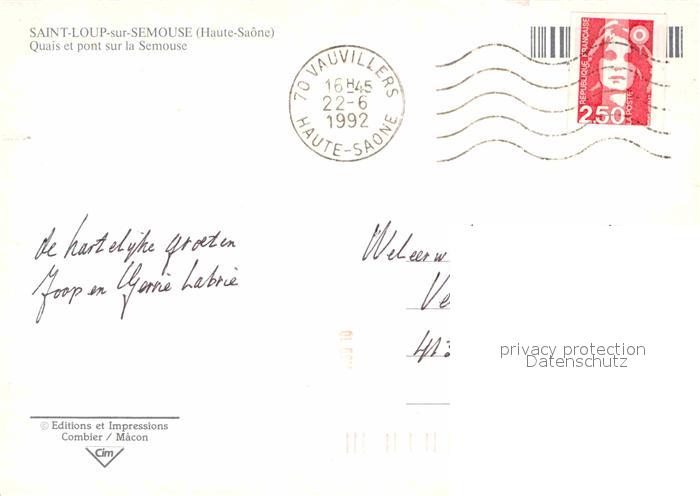 SAINT-LOUP-sur-SEMOUSE (Haute-Saône)
Quais et pont sur la Semouse
70 VAUVILLERS
16H45
22-6
1992
HAUTE-SAONE
REPUBLIQUE FRANÇAISE
2,50
LA POSTE
de hartelijke groeten
Joop en Gerrie Labrie
Weleerw
Ve
413
privacy protection
Datenschutz
© Editions et Impressions
Combier / Mâcon
Cim